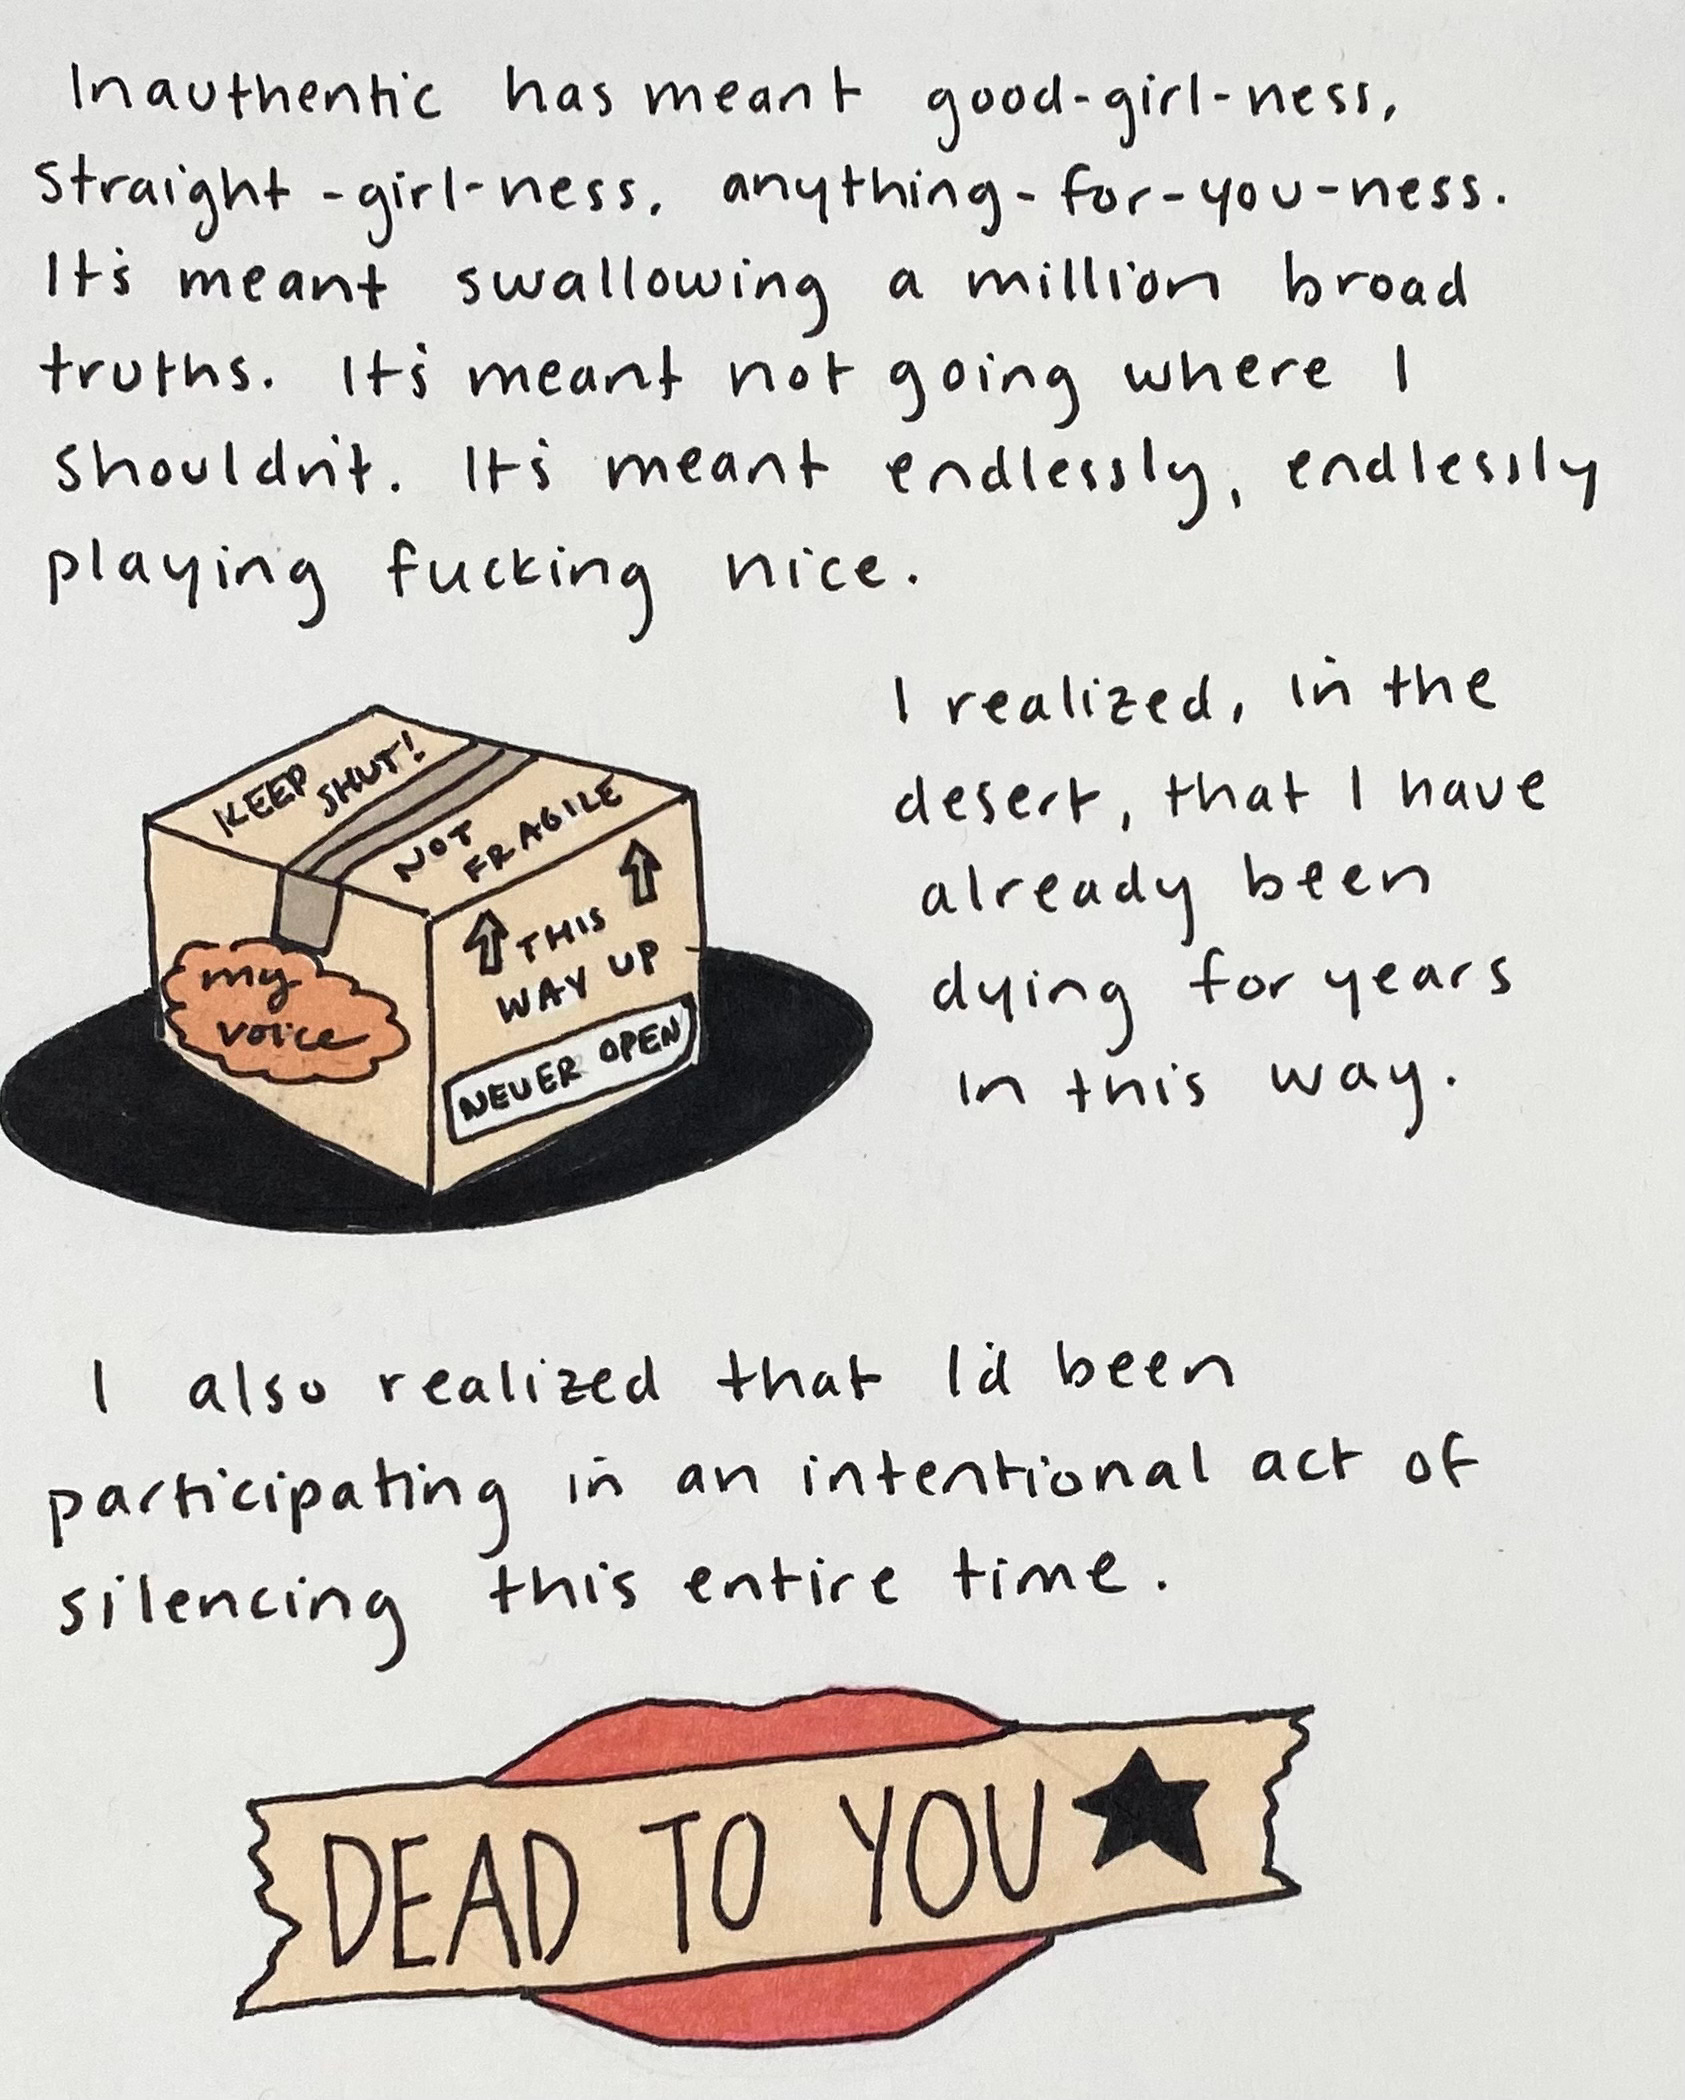 Inauthentic has meant good-girl-ness,
straight-girl-ness, anything-for-you-ness.
It's meant swallowing a million broad
truths. It's meant not going where I
shouldn't. It's meant endlessly, endlessly
playing fucking nice.
KEEP
SHUT!
NOT
FRAGILE
THIS
WAY UP
NEVER OPEN
my
voice
I realized, in the
desert, that I have
already been
dying for years
in this way.
I also realized that I'd been
participating in an intentional act of
silencing this entire time.
DEAD TO YOU